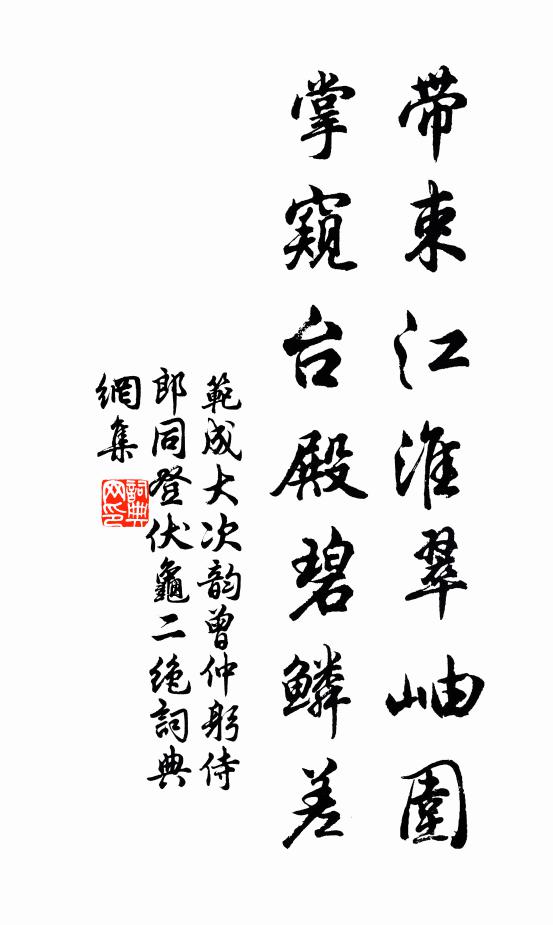 带束江淮翠岫圍
掌窺台殿碧鱗差
範成大次韵曾仲躬侍
郎同登伏龜二绝詞典
網集
詞典
网印